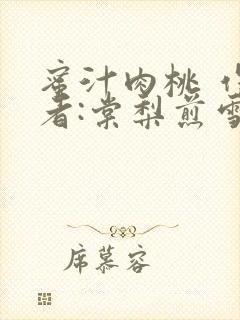 蜜汁肉桃
者:棠梨煎雪
席慕容